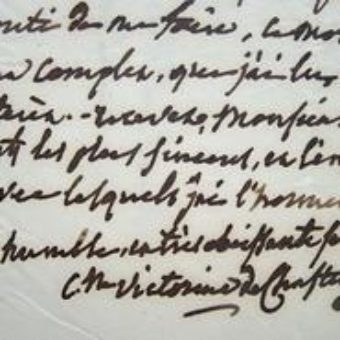 de me faire, ce mo
complex, que j'ai lu
recevez, Monsieur
les plus sinceres, et l'em
avec lesquels j'ai l'honne
humble, et très obeissante se
Victorine de Chaste